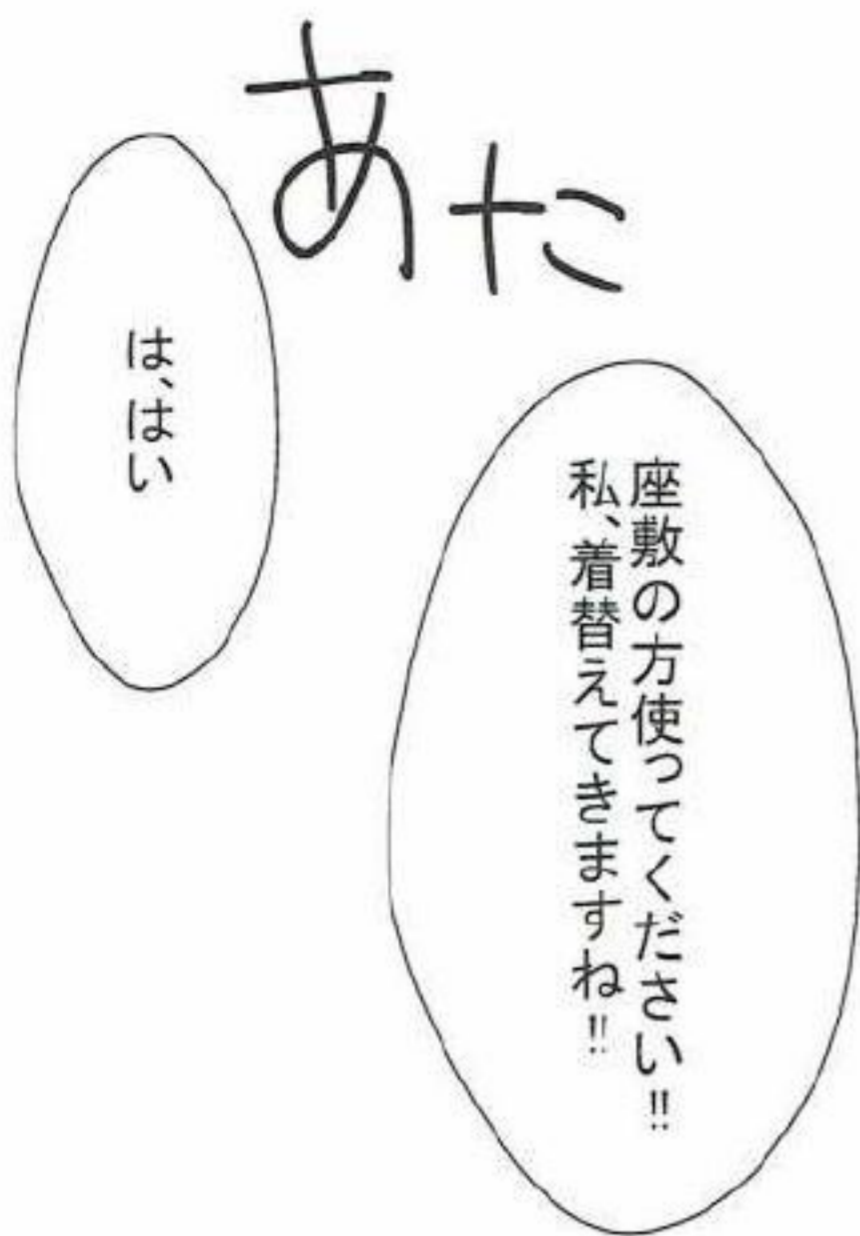 座敷の方使ってください!!
私、着替えてきますね!!
あた
は、はい